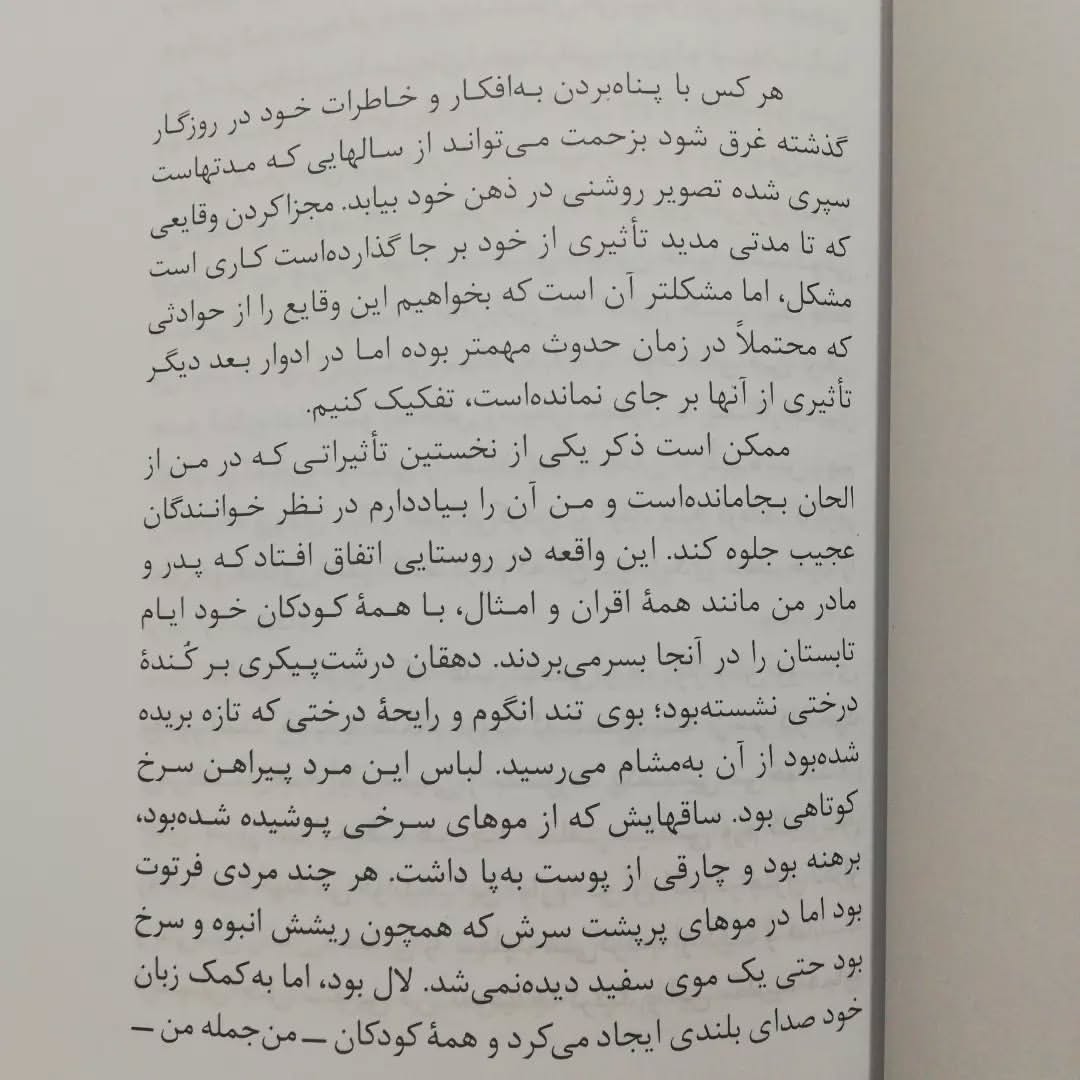 هر کس با پناه‌بردن به‌افکار و خاطرات خود در روزگار
گذشته غرق شود بزحمت می‌تواند از سالهایی که مدتهاست
سپری شده تصویر روشنی در ذهن خود بیابد. مجزاکردن وقایعی
که تا مدتی مدید تأثیری از خود بر جا گذارده‌است کاری است
مشکل، اما مشکلتر آن است که بخواهیم این وقایع را از حوادثی
که محتملاً در زمان حدوث مهمتر بوده اما در ادوار بعد دیگر
تأثیری از آنها بر جای نمانده‌است، تفکیک کنیم.
ممکن است ذکر یکی از نخستین تأثیراتی که در من از
الحان بجامانده‌است و من آن را بیاددارم در نظر خوانندگان
عجیب جلوه کند. این واقعه در روستایی اتفاق افتاد که پدر و
مادر من مانند همهٔ اقران و امثال، با همهٔ کودکان خود ایام
تابستان را در آنجا بسرمی‌بردند. دهقان درشت‌پیکری بر کُندهٔ
درختی نشسته‌بود؛ بوی تند انگوم و رایحهٔ درختی که تازه بریده
شده‌بود از آن به‌مشام می‌رسید. لباس این مرد پیراهن سرخ
کوتاهی بود. ساقهایش که از موهای سرخی پوشیده شده‌بود،
برهنه بود و چارقی از پوست به‌پا داشت. هر چند مردی فرتوت
بود اما در موهای پرپشت سرش که همچون ریشش انبوه و سرخ
بود حتی یک موی سفید دیده‌نمی‌شد. لال بود، اما به‌کمک زبان
خود صدای بلندی ایجاد می‌کرد و همهٔ کودکان ــ من‌جمله من ــ